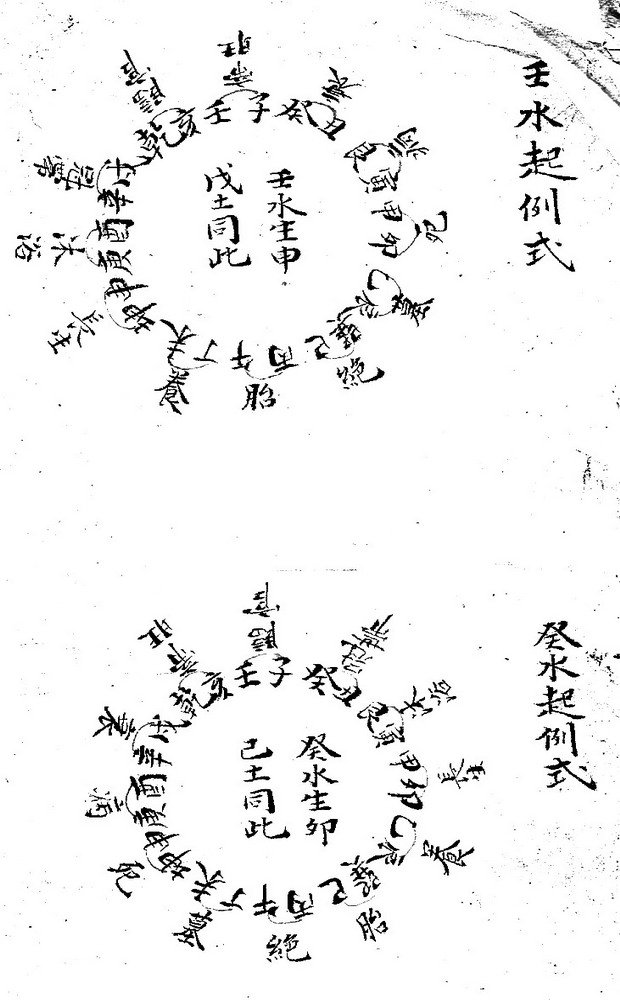 壬水起例式
壬水生申
戊土同此
壬子
癸丑
艮寅
甲卯
乙辰
巽巳
丙午
丁未
坤申
庚酉
辛戌
乾亥
帝旺
衰
病
死
墓
絕
胎
養
長生
沐浴
冠帶
臨官
癸水起例式
癸水生卯
己土同此
壬子
癸丑
艮寅
甲卯
乙辰
巽巳
丙午
丁未
坤申
庚酉
辛戌
乾亥
臨官
冠帶
沐浴
長生
養
胎
絕
墓
死
病
衰
帝旺